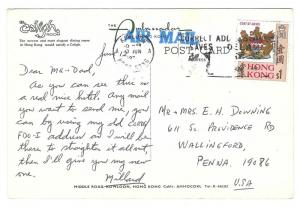 The Ambassador
the Califa
The newest and most elegant dining room
in Hong Kong would satisfy a Caliph.
AIR MAIL
POST CARD
CORRECT ADDRESS
SAVES DELAY
HONG KONG
$1
June
Dear Ma + Dad,
As you can see this is a
real nice hotel. Any mail
you want to send me, you
can by using my old Corry
FOO-1 address as I will be
there to straighten it about,
then I'll give you my new
one.
Millard
Mr + Mrs. E. H. DOWNING
611 So PROVIDENCE RD
WALLINGFORD,
PENNA. 19086
USA
MIDDLE ROAD, KOWLOON, HONG KONG Cable: AMHOCORL Tel: K-666321